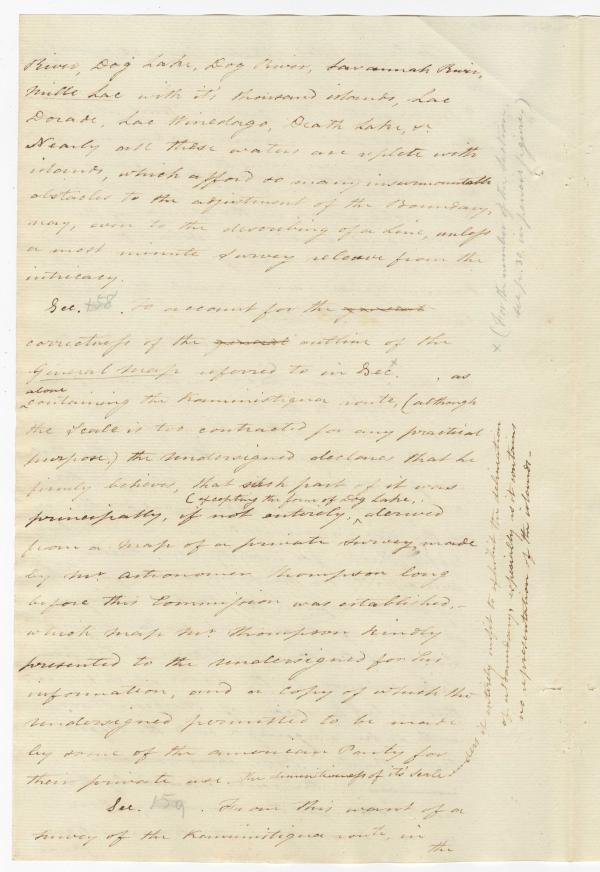 River, Dog Lake, Dog River, Savannah River,
Mille Lac with it's thousand islands, Lac
Dorade, Lac Winedago, Death Lake, &c
Nearly all these waters are replete with
islands, which afford so many insurmountable
obstacles to the adjustment of the Boundary,
nay, even to the describing of a Line, unless
a most minute Survey relieve from the
intricacy.
Sec. 158. To account for the general
correctness of the general outline of the
General Map referred to in Sec. +, as
alone
containing the Kaministiqua route, (although
the Scale is too contracted for any practical
purpose,) the Undersigned declares that he
firmly believes, that such part of it was
(excepting the form of Dog Lake,)
principally, if not entirely, derived
from a Map of a private Survey, made
by Mr. Astronomer Thompson long
before this Commission was established,
which Map Mr. Thompson kindly
presented to the Undersigned for his
information, and a copy of which the
Undersigned permitted to be made
by some of the American Party for
their private use. The diminutiveness of it's Scale
ders it entirely unfit to exhibit the delineation
of a boundary, especially as it contains
no representation of the islands.
Sec. 159. From this want of a
Survey of the Kaministiqua route, in
the
+ (For the number of the section,
see in pencil figures)